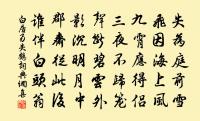 失為庭前雪
飛因海上風
九霄應得侶
三夜不歸籠
聲斷碧雲外
影沉明月中
郡齋從此後
誰伴白頭翁
白居易失鶴詞典網喜